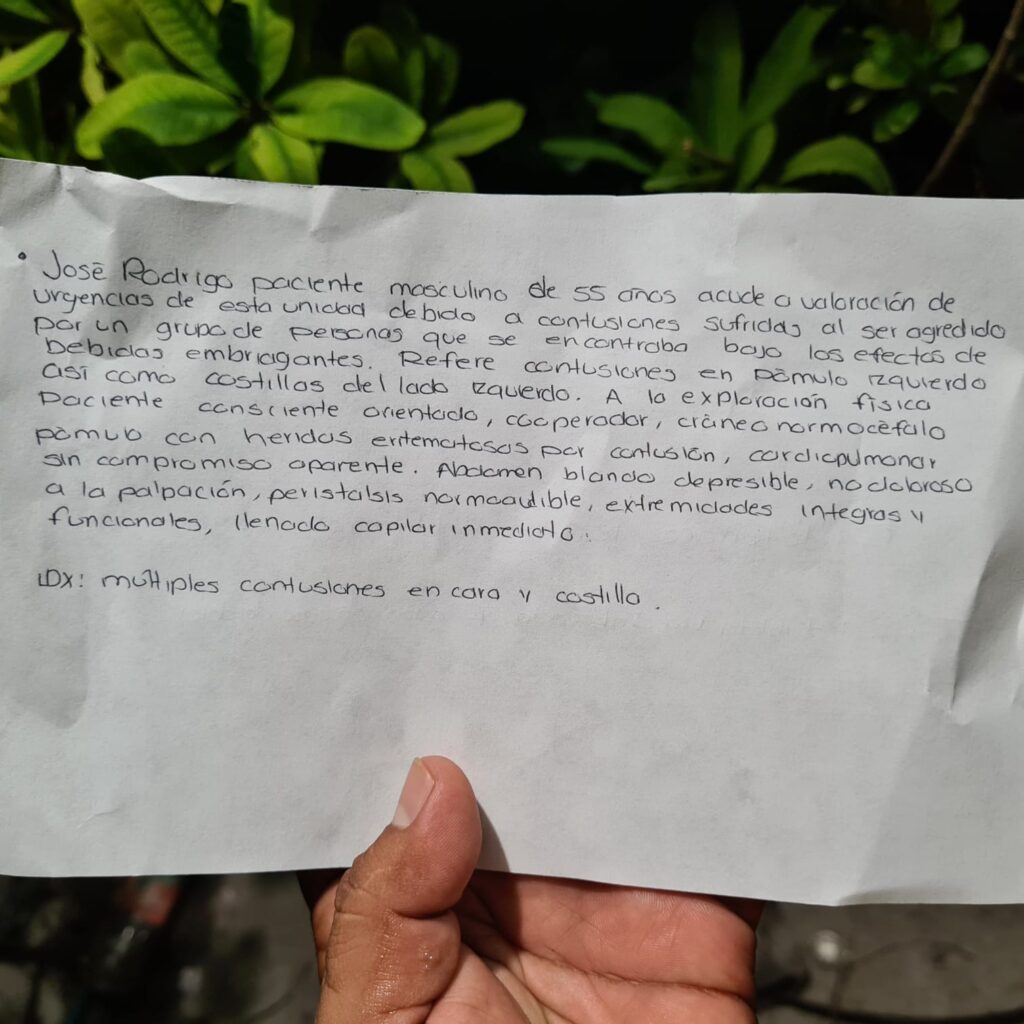 • José Rodrigo paciente masculino de 55 años acude a valoración de
urgencias de esta unidad debido a contusiones sufridas al ser agredido
por un grupo de personas que se encontraba bajo los efectos de
bebidas embriagantes. Refere contusiones en pómulo izquierdo
así como costillas del lado izquerdo. A la exploración física
paciente consciente orientado, cooperador, cráneo normocéfalo
pómulo con heridas eritematosas por contusión, cardiopulmonar
sin compromiso aparente. Abdomen blando depresible, no doloroso
a la palpación, peristalsis normoaudible, extremidades integras y
funcionales, llenado capilar inmediato.
IDX: múltiples contusiones en cara y costilla.